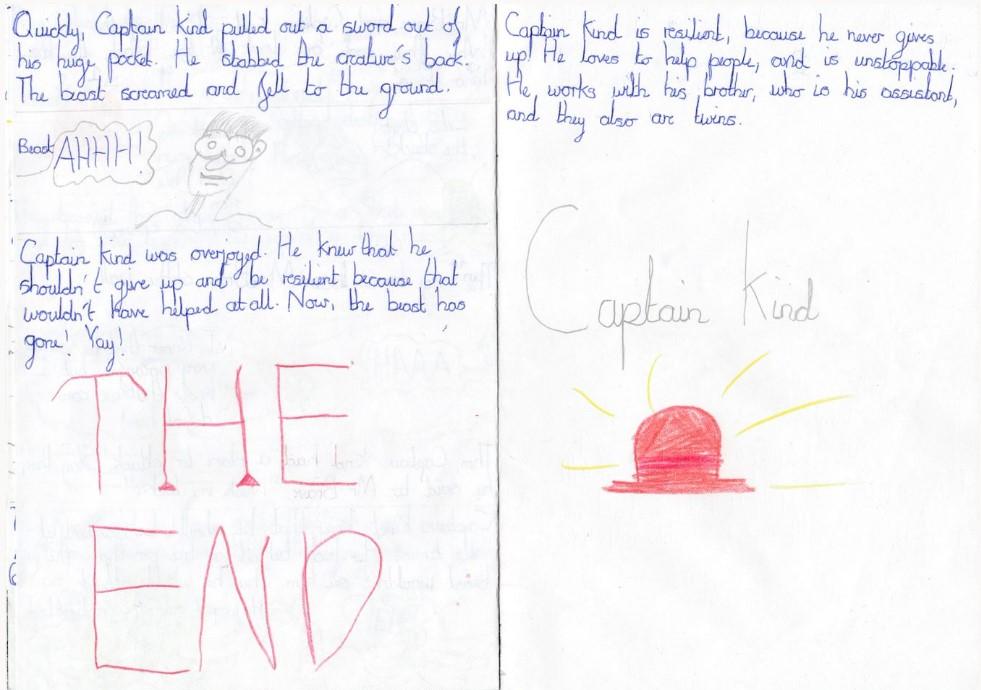 Quickly, Captain Kind pulled out a sword out of
his huge pocket. He stabbed the creature's back.
The beast screamed and fell to the ground.
Beast AHHH!
Captain Kind was overjoyed. He knew that he
shouldn't give up and be resilient because that
wouldn't have helped at all. Now, the beast has
gone! Yay!
THE
END
Captain Kind is resilient, because he never gives
up! He loves to help people, and is unstoppable.
He works with his brother, who is his assistant,
and they also are twins.
Captain Kind